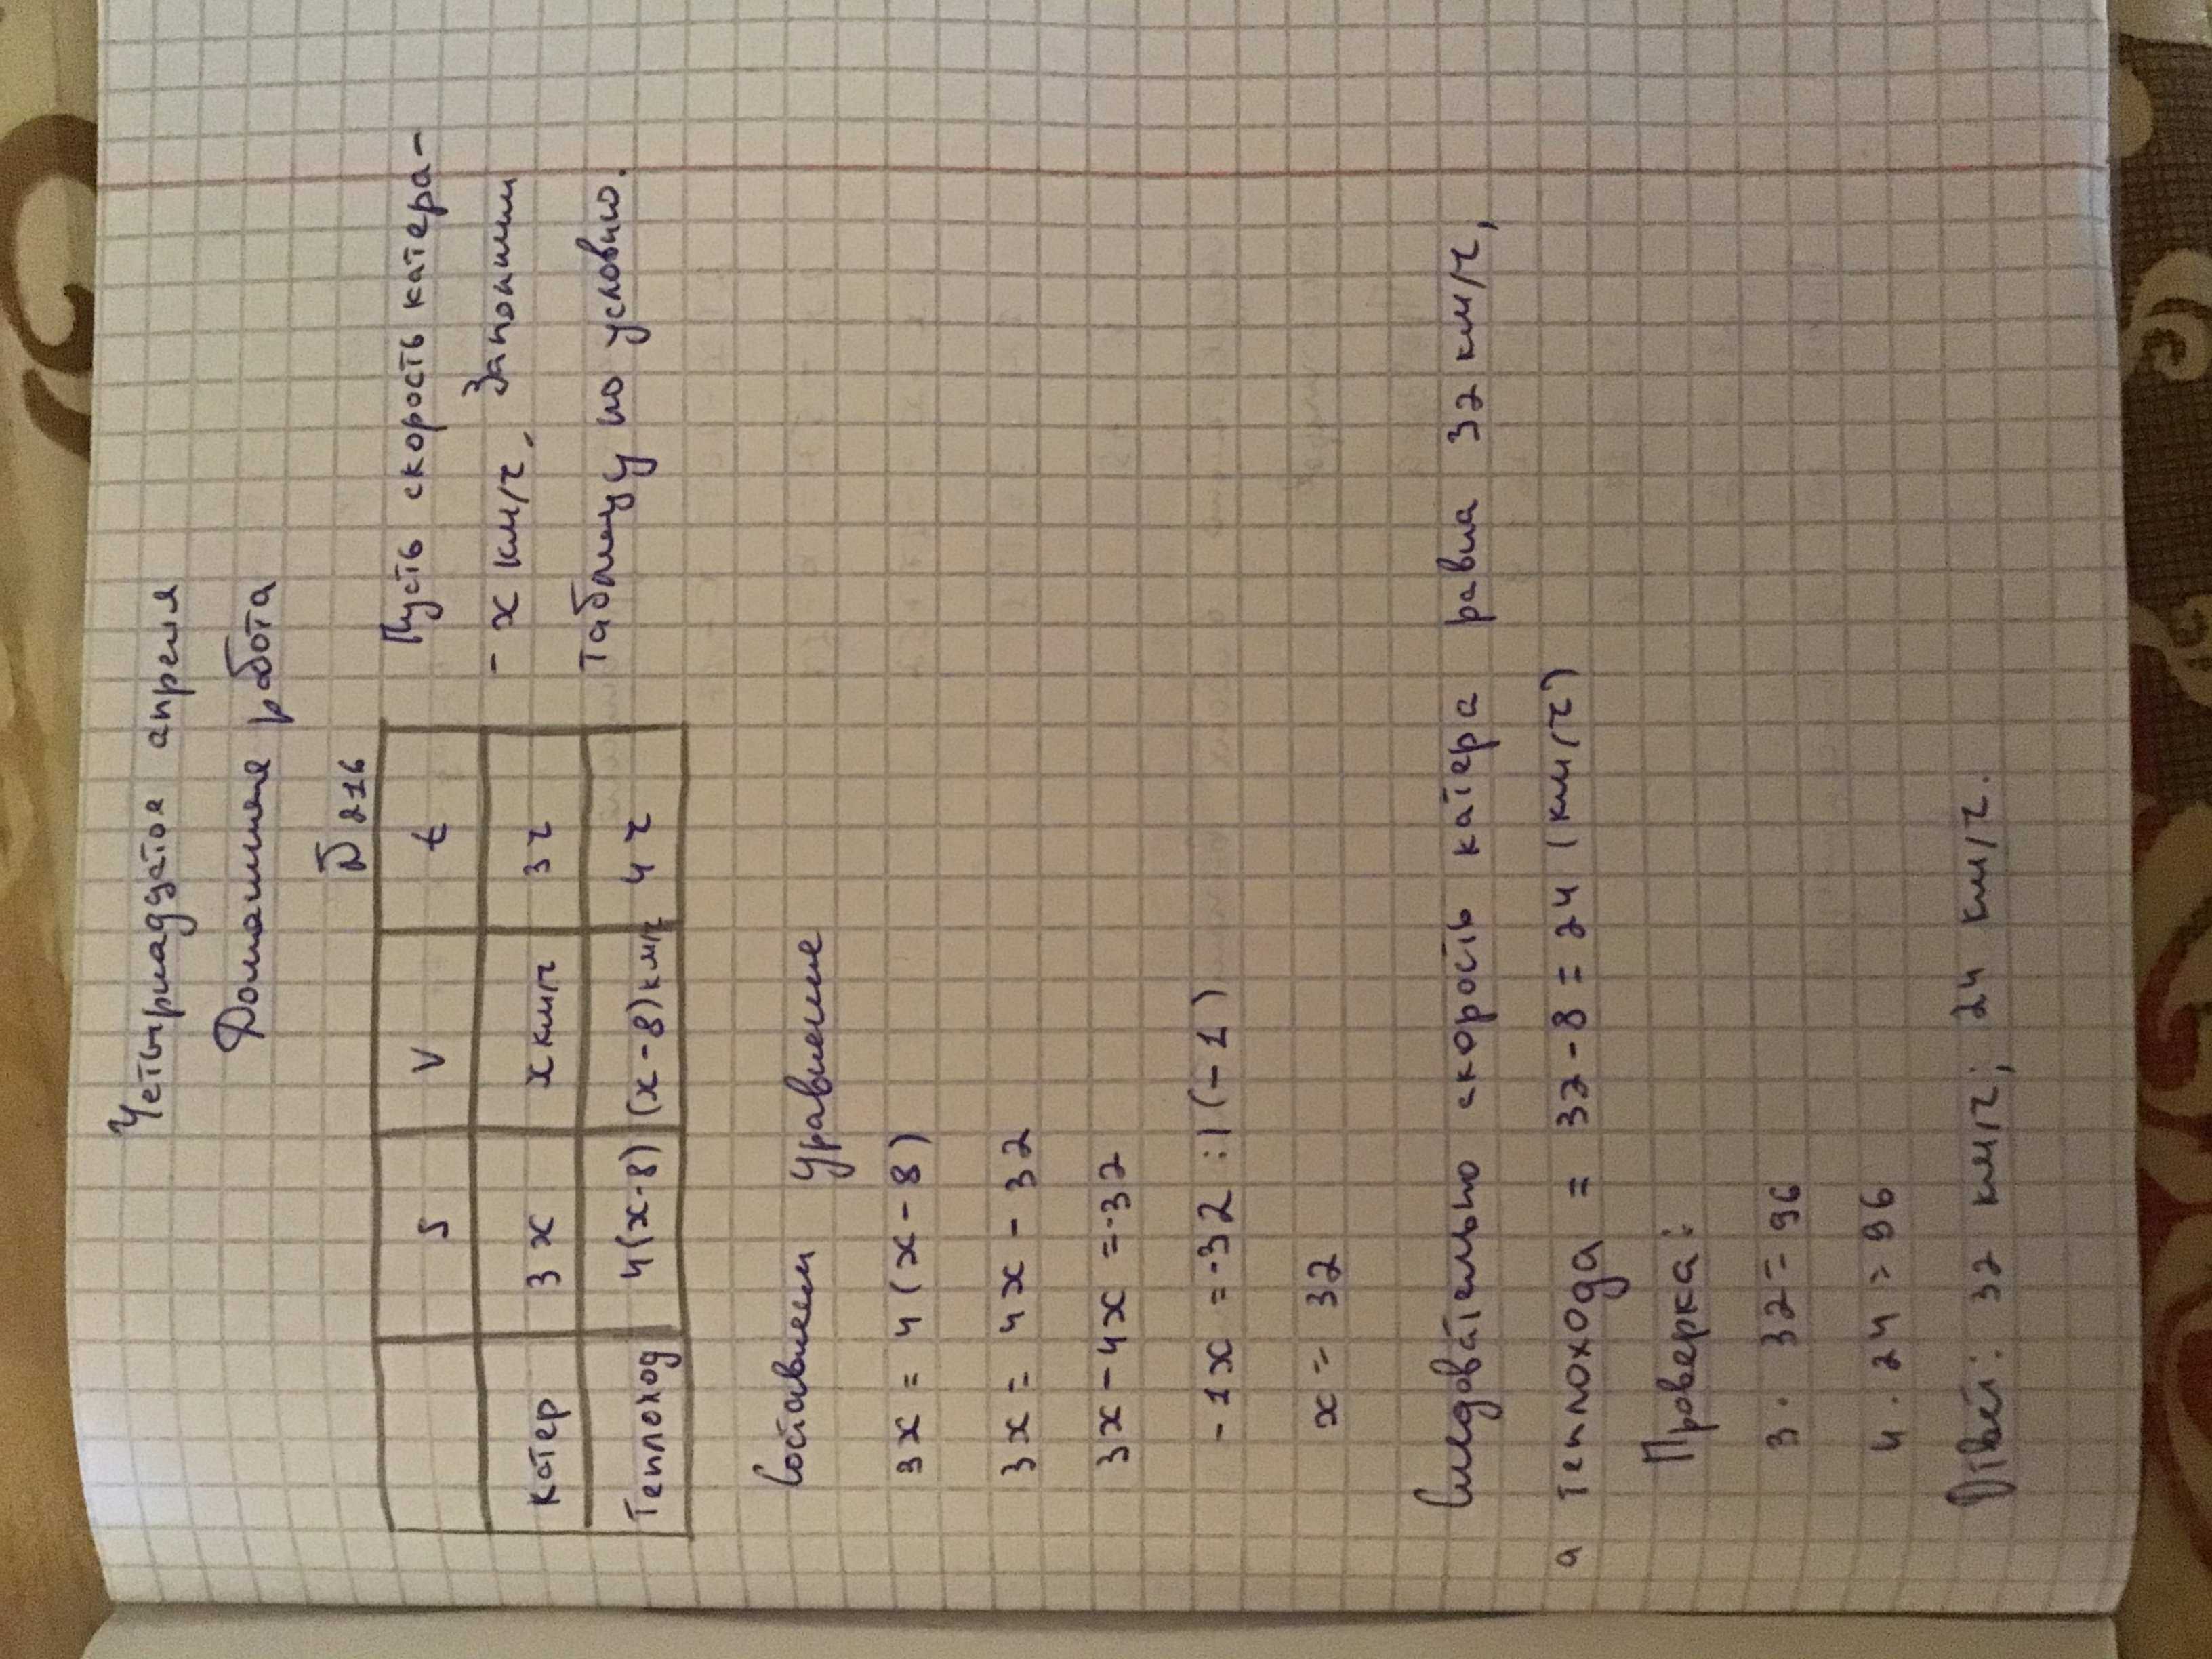 Четырнадцатое апреля
Домашняя работа
№ 216
S V t
Катер 3x x км/ч 3ч
Теплоход 4(x-8) (x-8)км/ч 4ч
Пусть скорость катера-
- x км/ч. Заполним
таблицу по условию.
Составляем уравнение
3x = 4(x-8)
3x = 4x - 32
3x - 4x = -32
-1x = -32 :|(-1)
x = 32
Следовательно скорость катера равна 32 км/ч,
а теплохода = 32-8=24 (км/ч)
Проверка:
3 · 32 = 96
4 · 24 = 96
Ответ: 32 км/ч; 24 км/ч.